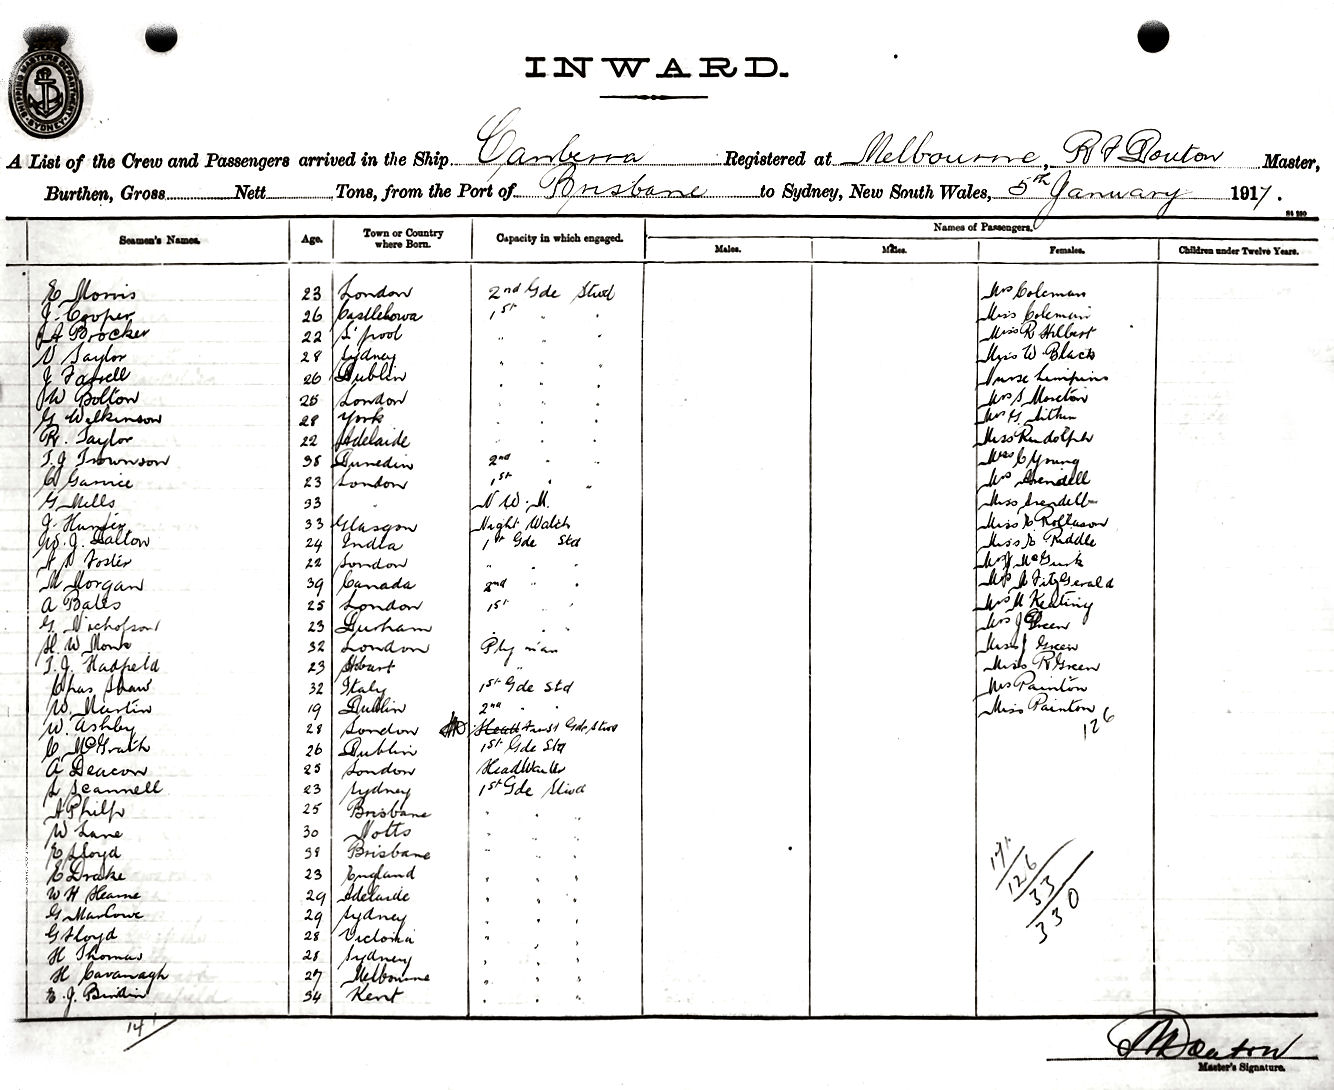 SHIPPING MASTERS DEPARTMENT SYDNEY
INWARD.
A List of the Crew and Passengers arrived in the Ship Canberra Registered at Melbourne, Master,
Burthen, Gross Nett Tons, from the Port of Brisbane to Sydney, New South Wales, 5th January 1917.
Names of Passengers.
Seamen's Names. Age. Town or Country where Born. Capacity in which engaged. Males. Males. Females. Children under Twelve Years.
E Morris 23 London 2nd Gde Stwd Mrs Coleman
J. Cooper 26 1st " " Miss Coleman
A Brocker 22 L'pool " " " Miss R Hilbert
V Taylor 28 Sydney " " " Miss W Black
J Farrell 26 Dublin " " " Nurse
W Bolton 25 London " " " Mrs S Moreton
G Wilkinson 28 York " " " Mrs G Aitken
R. Taylor 22 Adelaide " " " Miss Rudolph
T. J Townson 38 Dunedin 2nd " " C Young
Garnice 23 London 1st " " Mrs Arendell
G Mills 33 " N. W. M. Miss Arendell
J. Hunter 33 Glasgow Night Watch Miss Rollason
W. J. Dalton 24 India 1st Gde Std Miss Riddle
Foster 22 London " " " McGurk
M Morgan 39 Canada 2nd " " FitzGerald
A Bates 25 London 1st " " Mrs M Keating
G. Nicholson 23 Durham " " Mrs J Green
H. W. Monk 32 London Pty man J Green
T. J. Hadfield 23 Hobart " Miss R Green
Chas Shaw 32 Italy 1st Gde Std Mrs Painton
W. Martin 19 Dublin 2nd " " Miss Painton
W. Ashby 28 London Gde Stwd 126
C McGrath 26 Dublin 1st Gde Std
A Deacon 25 London Head Waiter
L Scannell 23 Sydney 1st Gde Stwd
A Philp 25 Brisbane " " "
W Lane 30 Notts " " "
E Lloyd 38 Brisbane " " "
E Drake 23 England " " "
W H Hearne 29 Adelaide " " "
G Marlowe 29 Sydney " " "
G Lloyd 28 Victoria " " "
H Thomas 28 Sydney " " "
H Cavanagh 27 Melbourne " " "
E. J. 34 Kent " " "
171
126
33
330
141
Master's Signature.